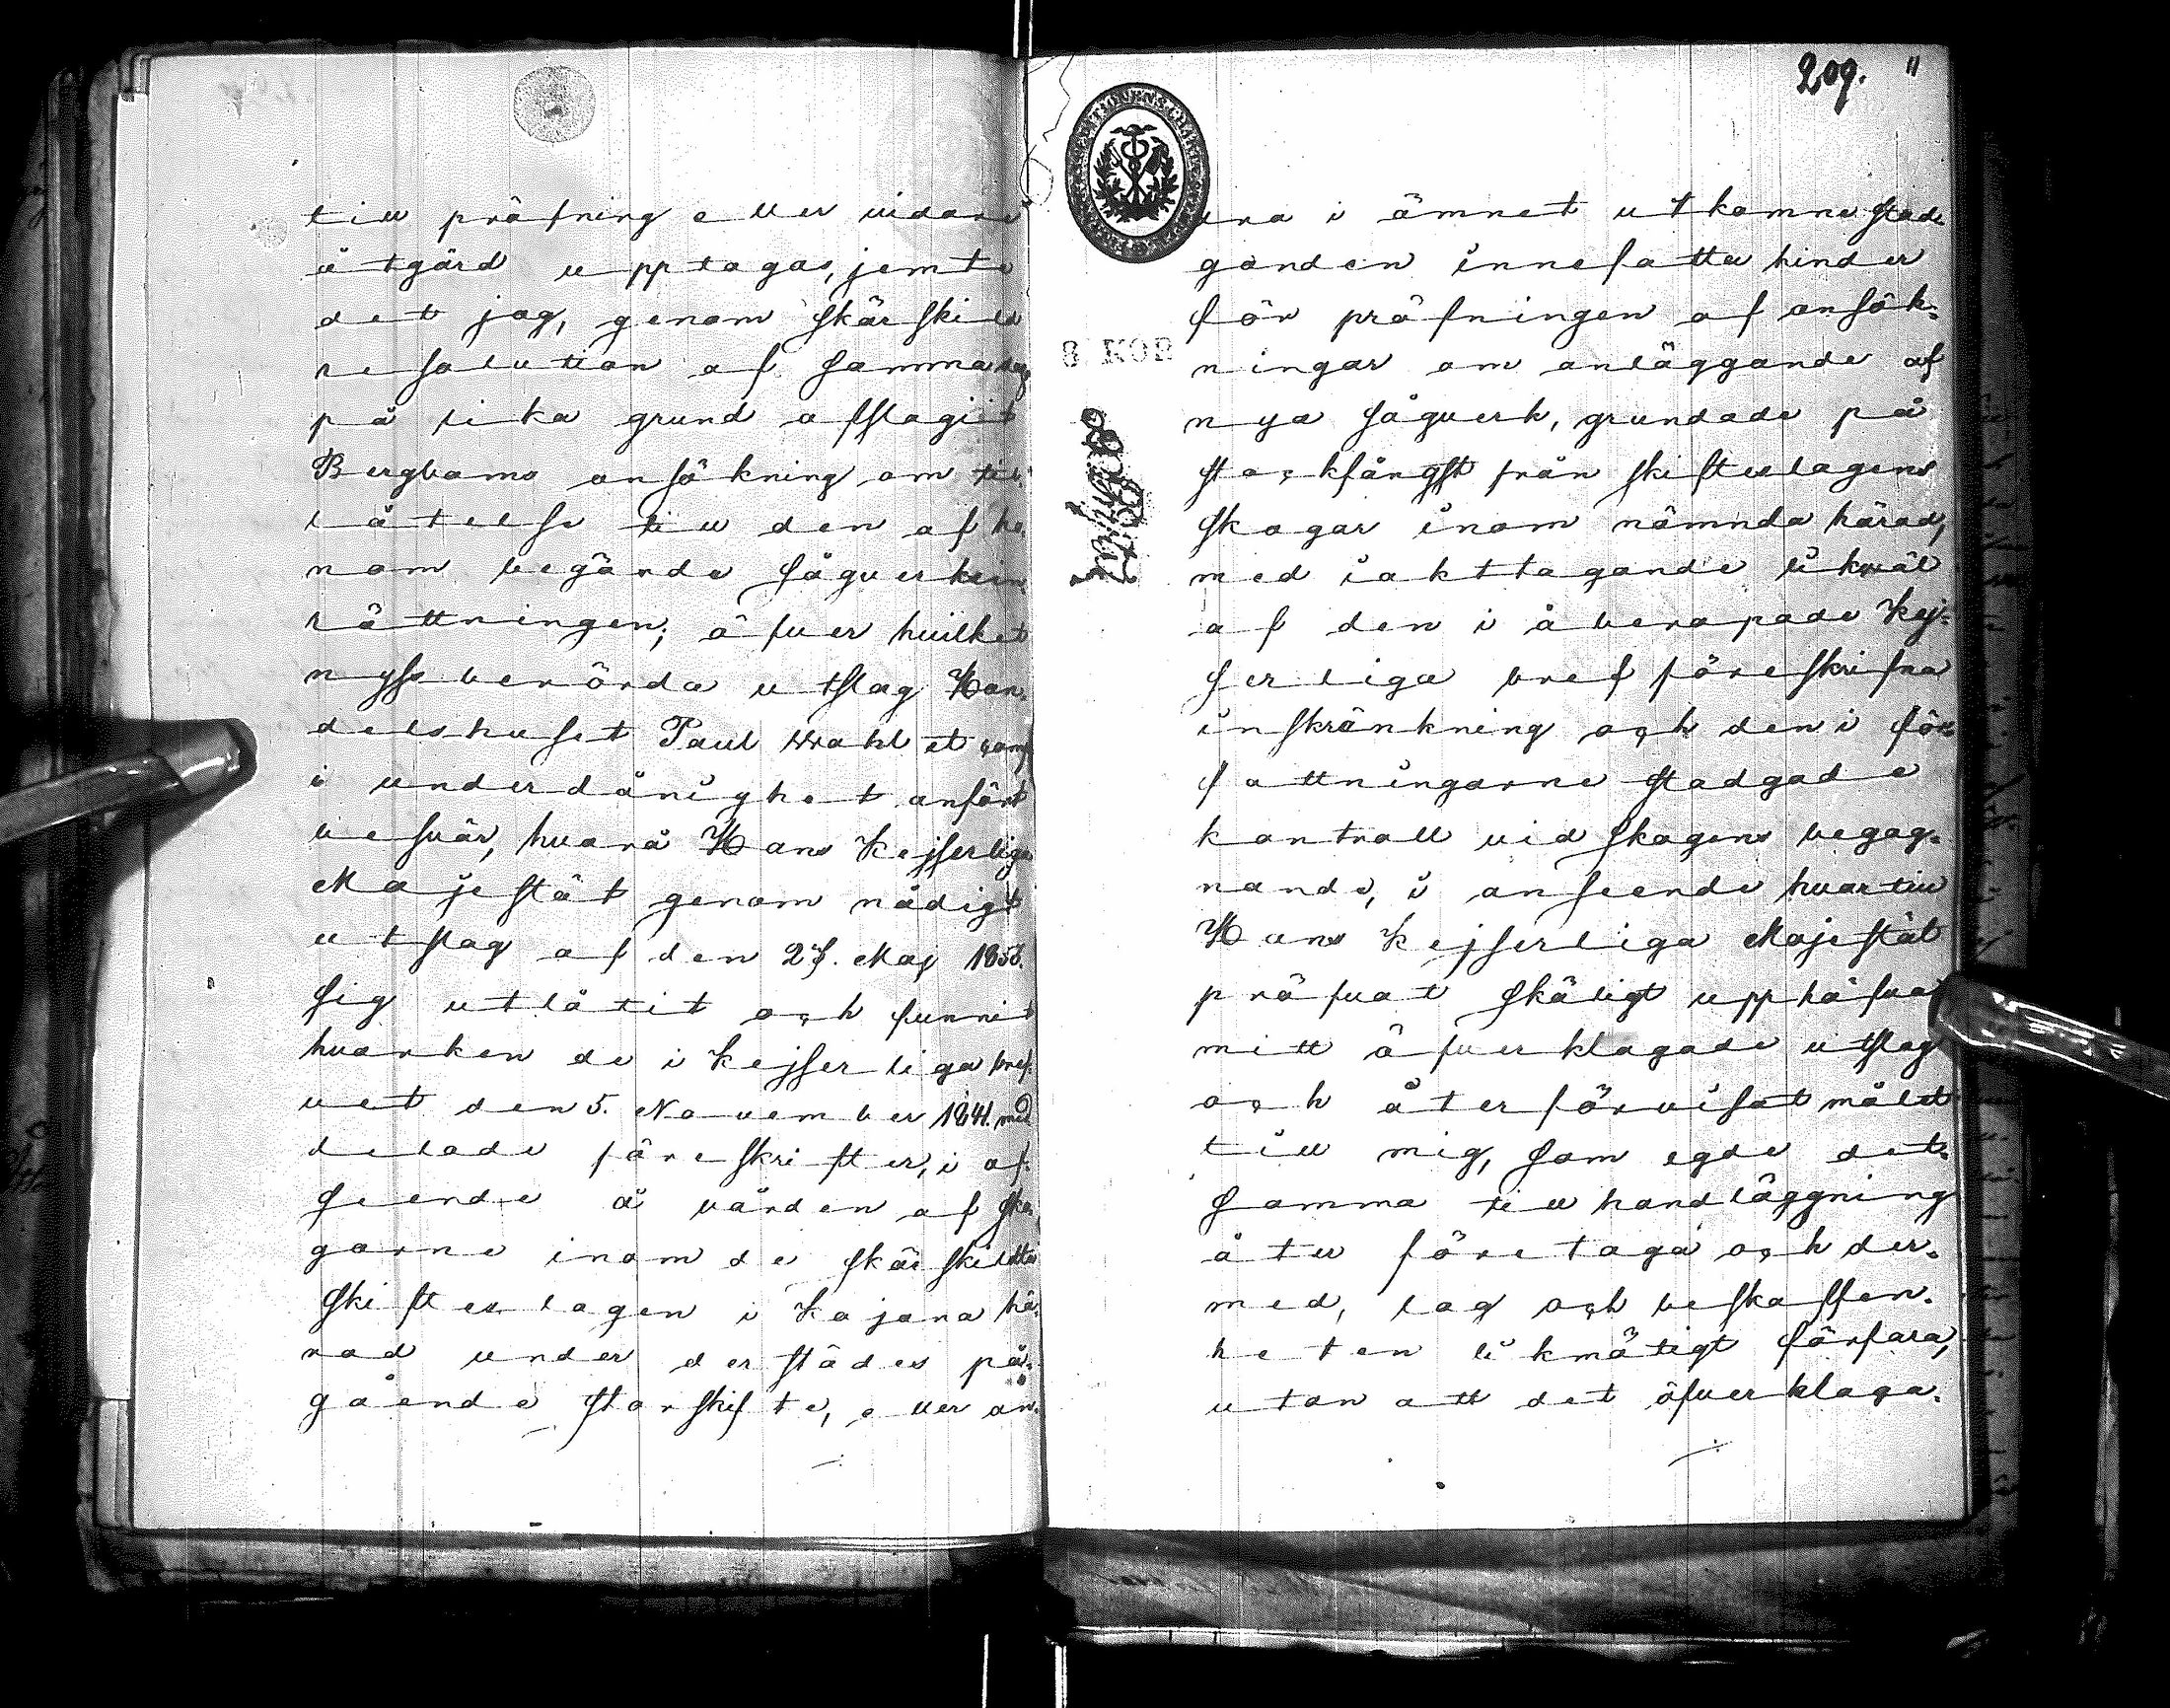 till pröfning eller vidare
åtgärd upptagas, jemte
det jag, genom särskild
resolution af samma dag
på lika grund afslagit
Bergboms ansökning om til-
låtelse till den af ho-
nom begärde sågverksin-
rättningen; öfver hvilket
nyssberörda utslag Han-
delshuset Paul Wahl et Comp
i underdånighet anfört
besvär, hvarå Hans Kejserliga
Majestät genom nådigt
utslag af den 27. Maj 1858.
sig utlåtit och funnit
hvarken de i Kejserliga bref-
vet den 5. November 1841. med-
delade föreskrifter, i af-
seende å vården af sko-
garne inom de särskildta
skifteslagen i Kajana hä-
rad under derstädes på-
gående storskifte, eller an-
209. 11
dra i ämnet utkomne stad-
ganden innefatta hinder
för pröfningen af ansök-
ningar om anläggande af
8 KOP
nya sågverk, grundade på
stockfångst från skifteslagens
skogar inom nämnda härad,
med iakttagande likväl
af den i åberopade Kej-
serliga bref föreskrifna
inskränkning och den i för-
fattningarne stadgade
kontroll vid skogens begag-
nande, i anseende hvartill
Hans Kejserliga Majestät
pröfvat skäligt upphäfva
mitt öfverklagade utslag
och återförvisat målet
till mig, som egde det-
samma till handläggning
åter företaga och der-
med, lag och beskaffen-
heten likmätigt förfara,
utan att det öfverklaga-